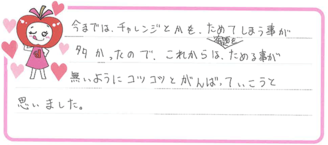 今までは、チャレンジとかを、ためてしまう事が
多かったので、これからは、ためる事が
無いようにコツコツとがんばっていこうと
思いました。